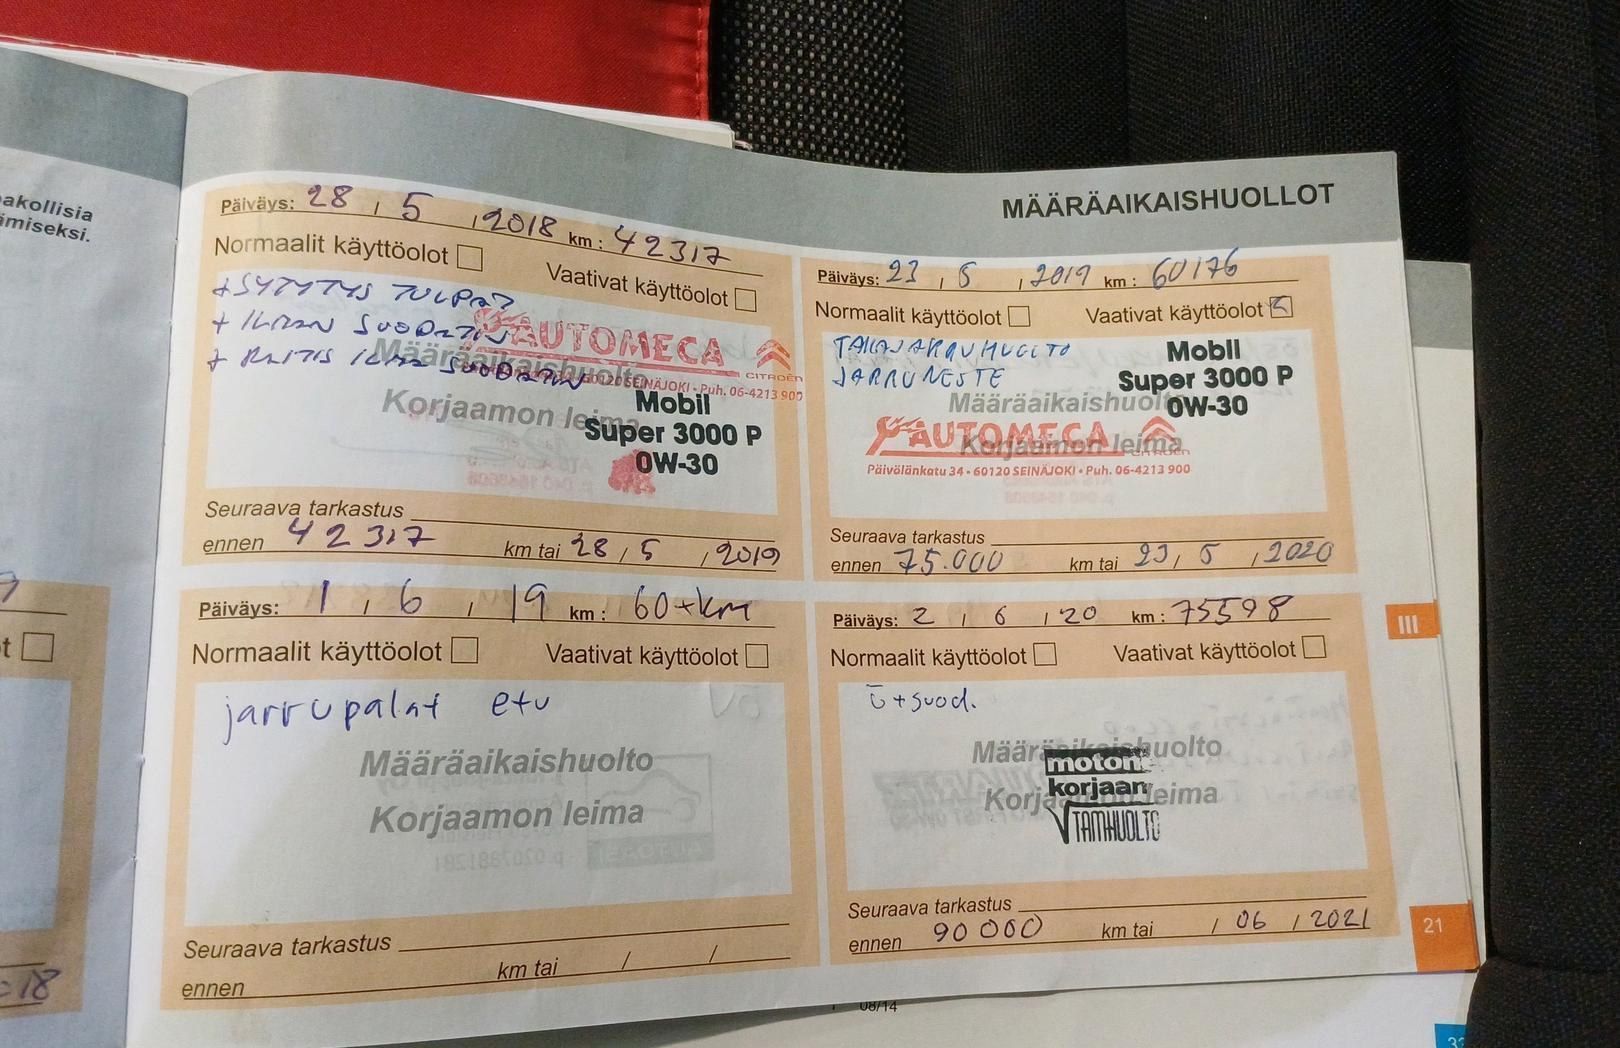 akollisia
miseksi.
MÄÄRÄAIKAISHUOLLOT
Päiväys: 28 / 5 / 2018 km: 42317
Normaalit käyttöolot
Vaativat käyttöolot
+ SYTYTYS TULPAT
+ ILMAN SUODATIN
+ RAITIS ILMA SUODATIN
AUTOMECA
CITROËN
60120 SEINÄJOKI • Puh. 06-4213 900
Määräaikaishuolto
Korjaamon leima
Mobil
Super 3000 P
0W-30
Seuraava tarkastus
ennen 42317 km tai 28 / 5 / 2019
Päiväys: 23 / 5 / 2019 km: 60176
Normaalit käyttöolot
Vaativat käyttöolot
TAKAJARRUHUOLTO
JARRUNESTE
Mobil
Super 3000 P
0W-30
Määräaikaishuolto
Korjaamon leima
AUTOMECA
CITROËN
Päivölänkatu 34 • 60120 SEINÄJOKI • Puh. 06-4213 900
Seuraava tarkastus
ennen 75.000 km tai 23 / 5 / 2020
Päiväys: 1 / 6 / 19 km: 60+km
Normaalit käyttöolot
Vaativat käyttöolot
jarrupalat etu
Määräaikaishuolto
Korjaamon leima
Seuraava tarkastus
ennen km tai / /
Päiväys: 2 / 6 / 20 km: 75598
Normaalit käyttöolot
Vaativat käyttöolot
ö+suod.
Määräaikaishuolto
Korjaamon leima
moton
korjaam
TAMHUOLTO
Seuraava tarkastus
ennen 90 000 km tai / 06 / 2021
III
21
08/14
18